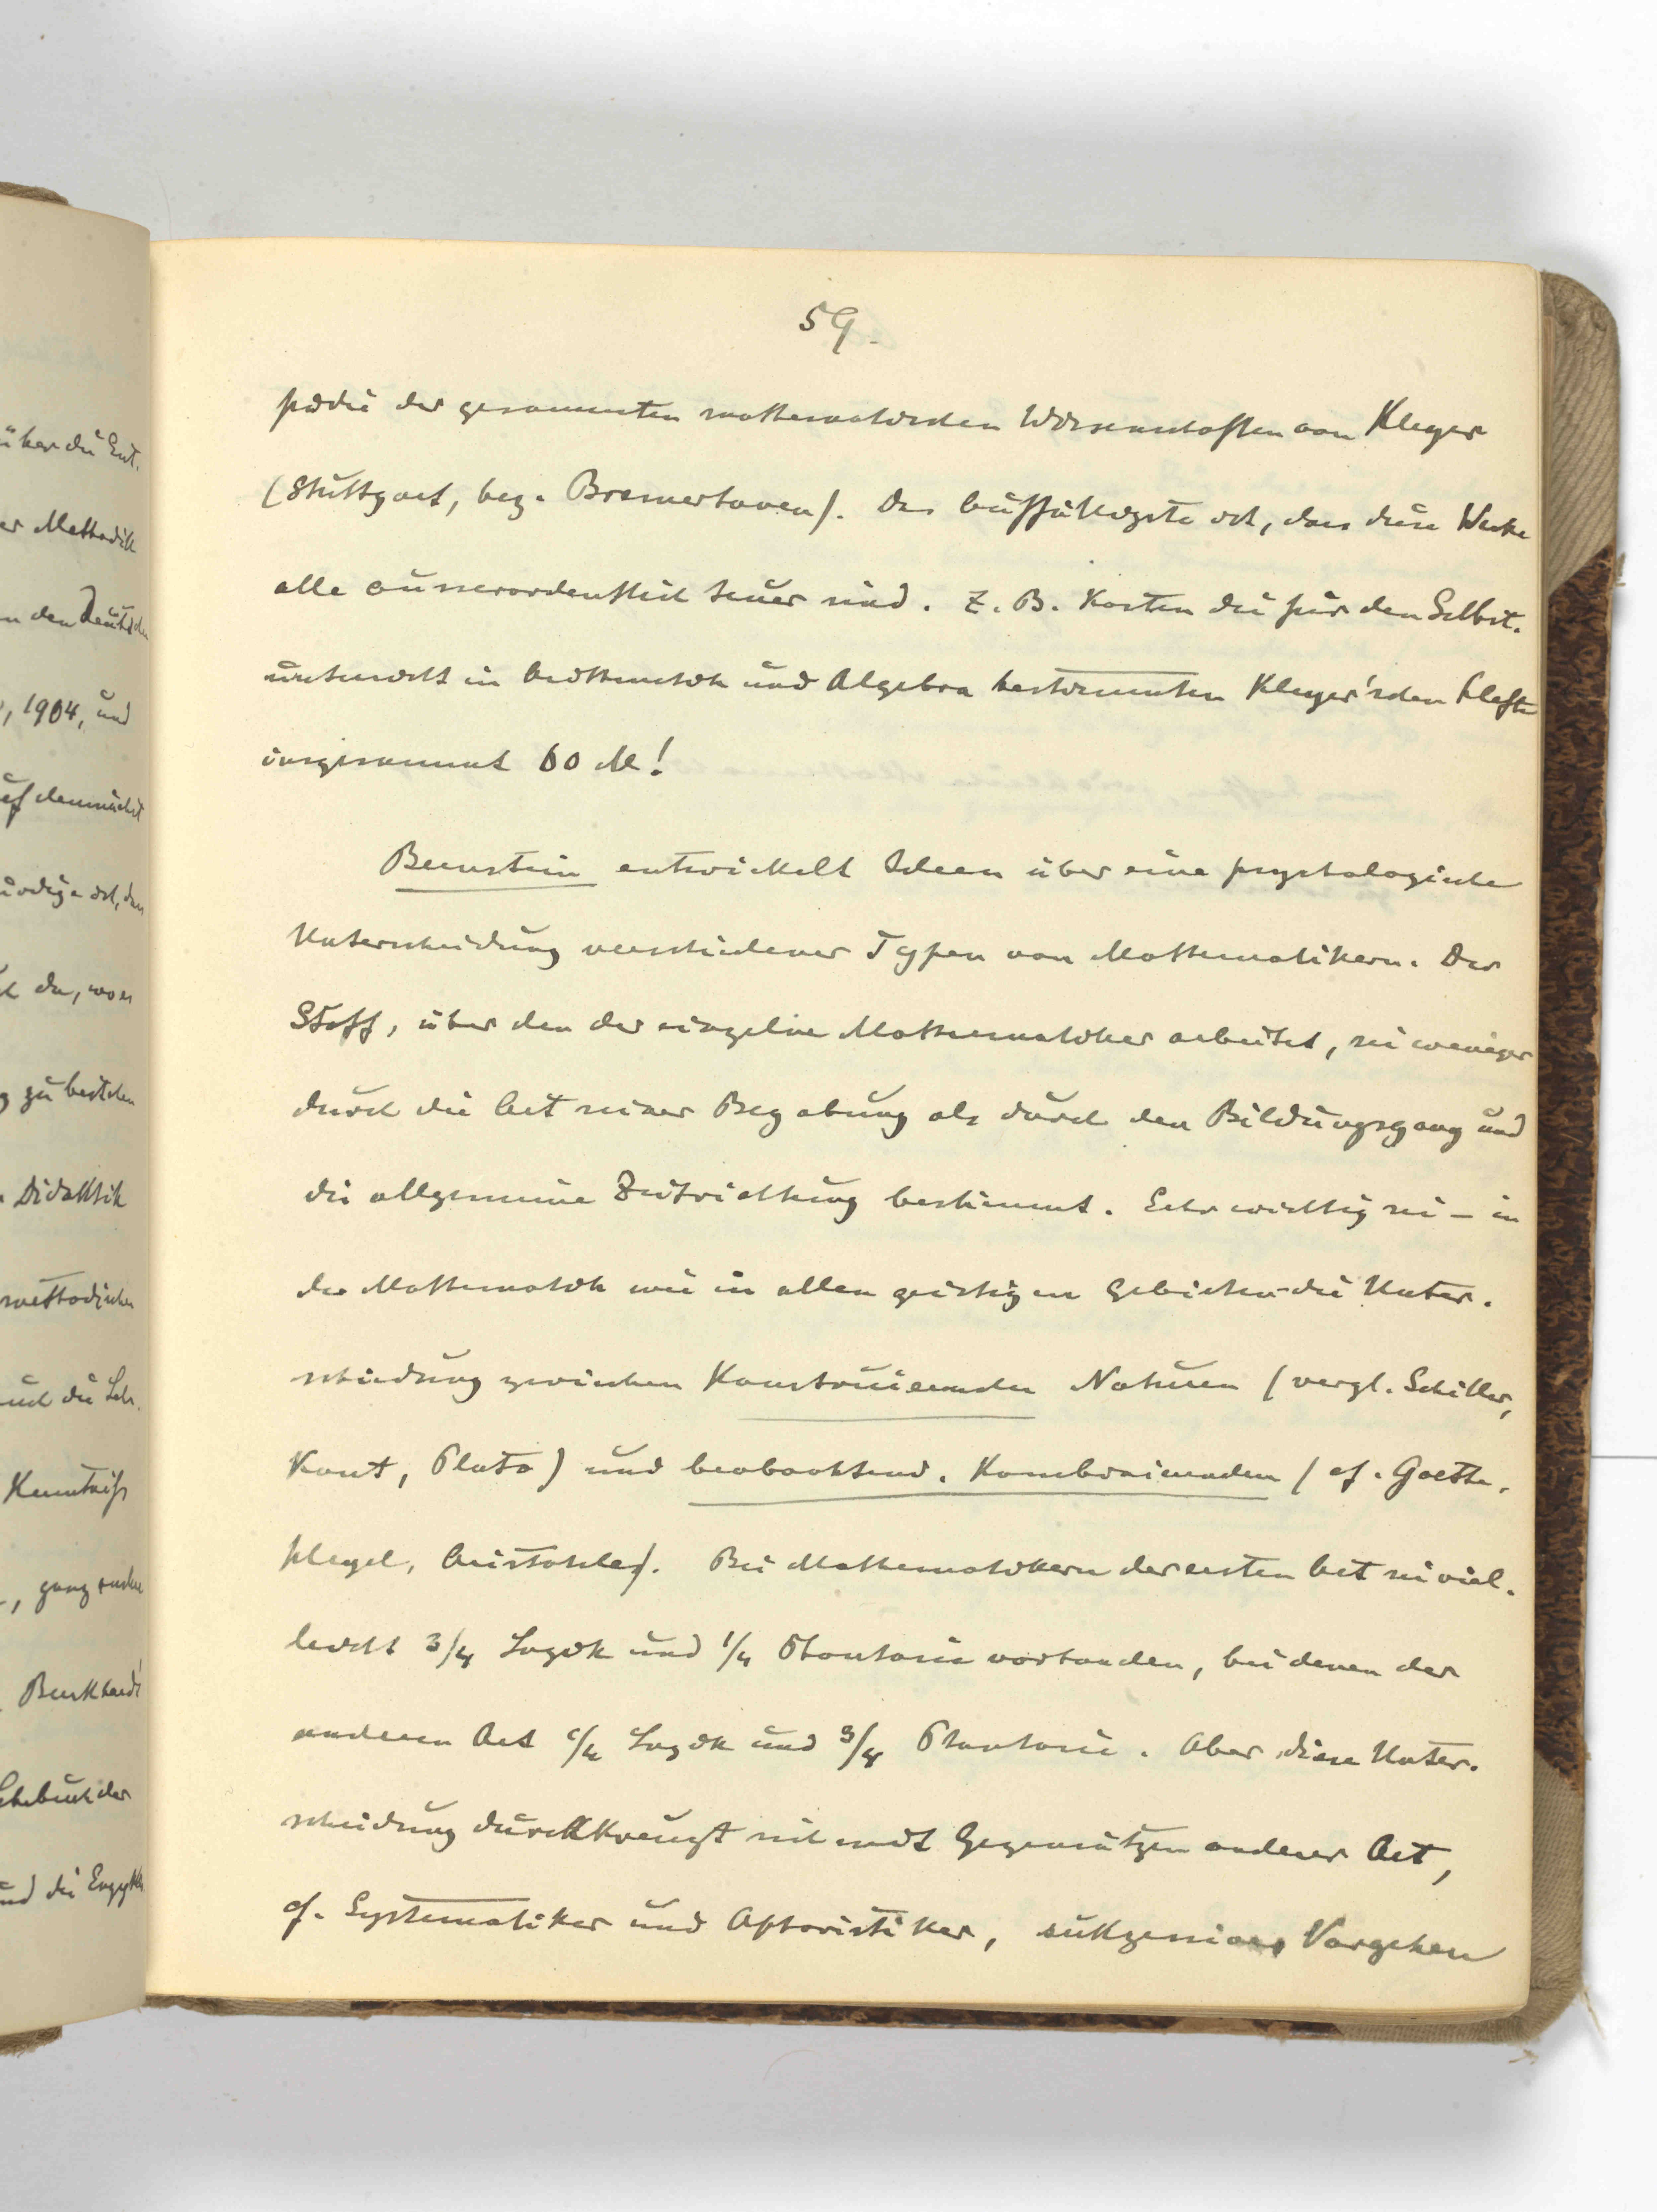 59.
pädie der gesammten mathematischen Wissenschaften von Kleyer
(Stuttgart, bez. Bremerhaven). Das auffälligste ist, dass diese Werke
alle ausserordentlich teuer sind. Z. B. kosten die für den Selbst-
unterricht in Arithmetik und Algebra bestimmten Kleyer'schen Hefte
insgesammt 60 M!
Bernstein entwickelt Ideen über eine psychologische
Unterscheidung verschiedener Typen von Mathematikern. Der
Stoff, über den der einzelne Mathematiker arbeitet, sei weniger
durch die Art seiner Begabung als durch den Bildungsgang und
die allgemeine Zeitrichtung bestimmt. Sehr wichtig sei – in
der Mathematik wie in allen geistigen Gebieten – die Unter-
scheidung zwischen konstruierenden Naturen (vergl. Schiller,
Kant, Plato) und beobachtend-kombinierenden (cf. Goethe,
Hegel, Aristoteles). Bei Mathematikern der ersten Art sei viel-
leicht 3/4 Logik und 1/4 Phantasie vorhanden, bei denen der
anderen Art 1/4 Logik und 3/4 Phantasie. Aber diese Unter-
scheidung durchkreuzt sich mit Gegensätzen anderer Art,
cf. Systematiker und Aphoristiker, sukzessives Vorgehen
über die Ent-
er Methodik
n den Deutschen
, 1904, und
auf demnächst
ist, dass
da, wo es
g zu bestehen
Didaktik
methodischen
auch die Leh-
Kenntniss
, ganz
Burkhardt
Lehrbuch der
und die Enzyklo-